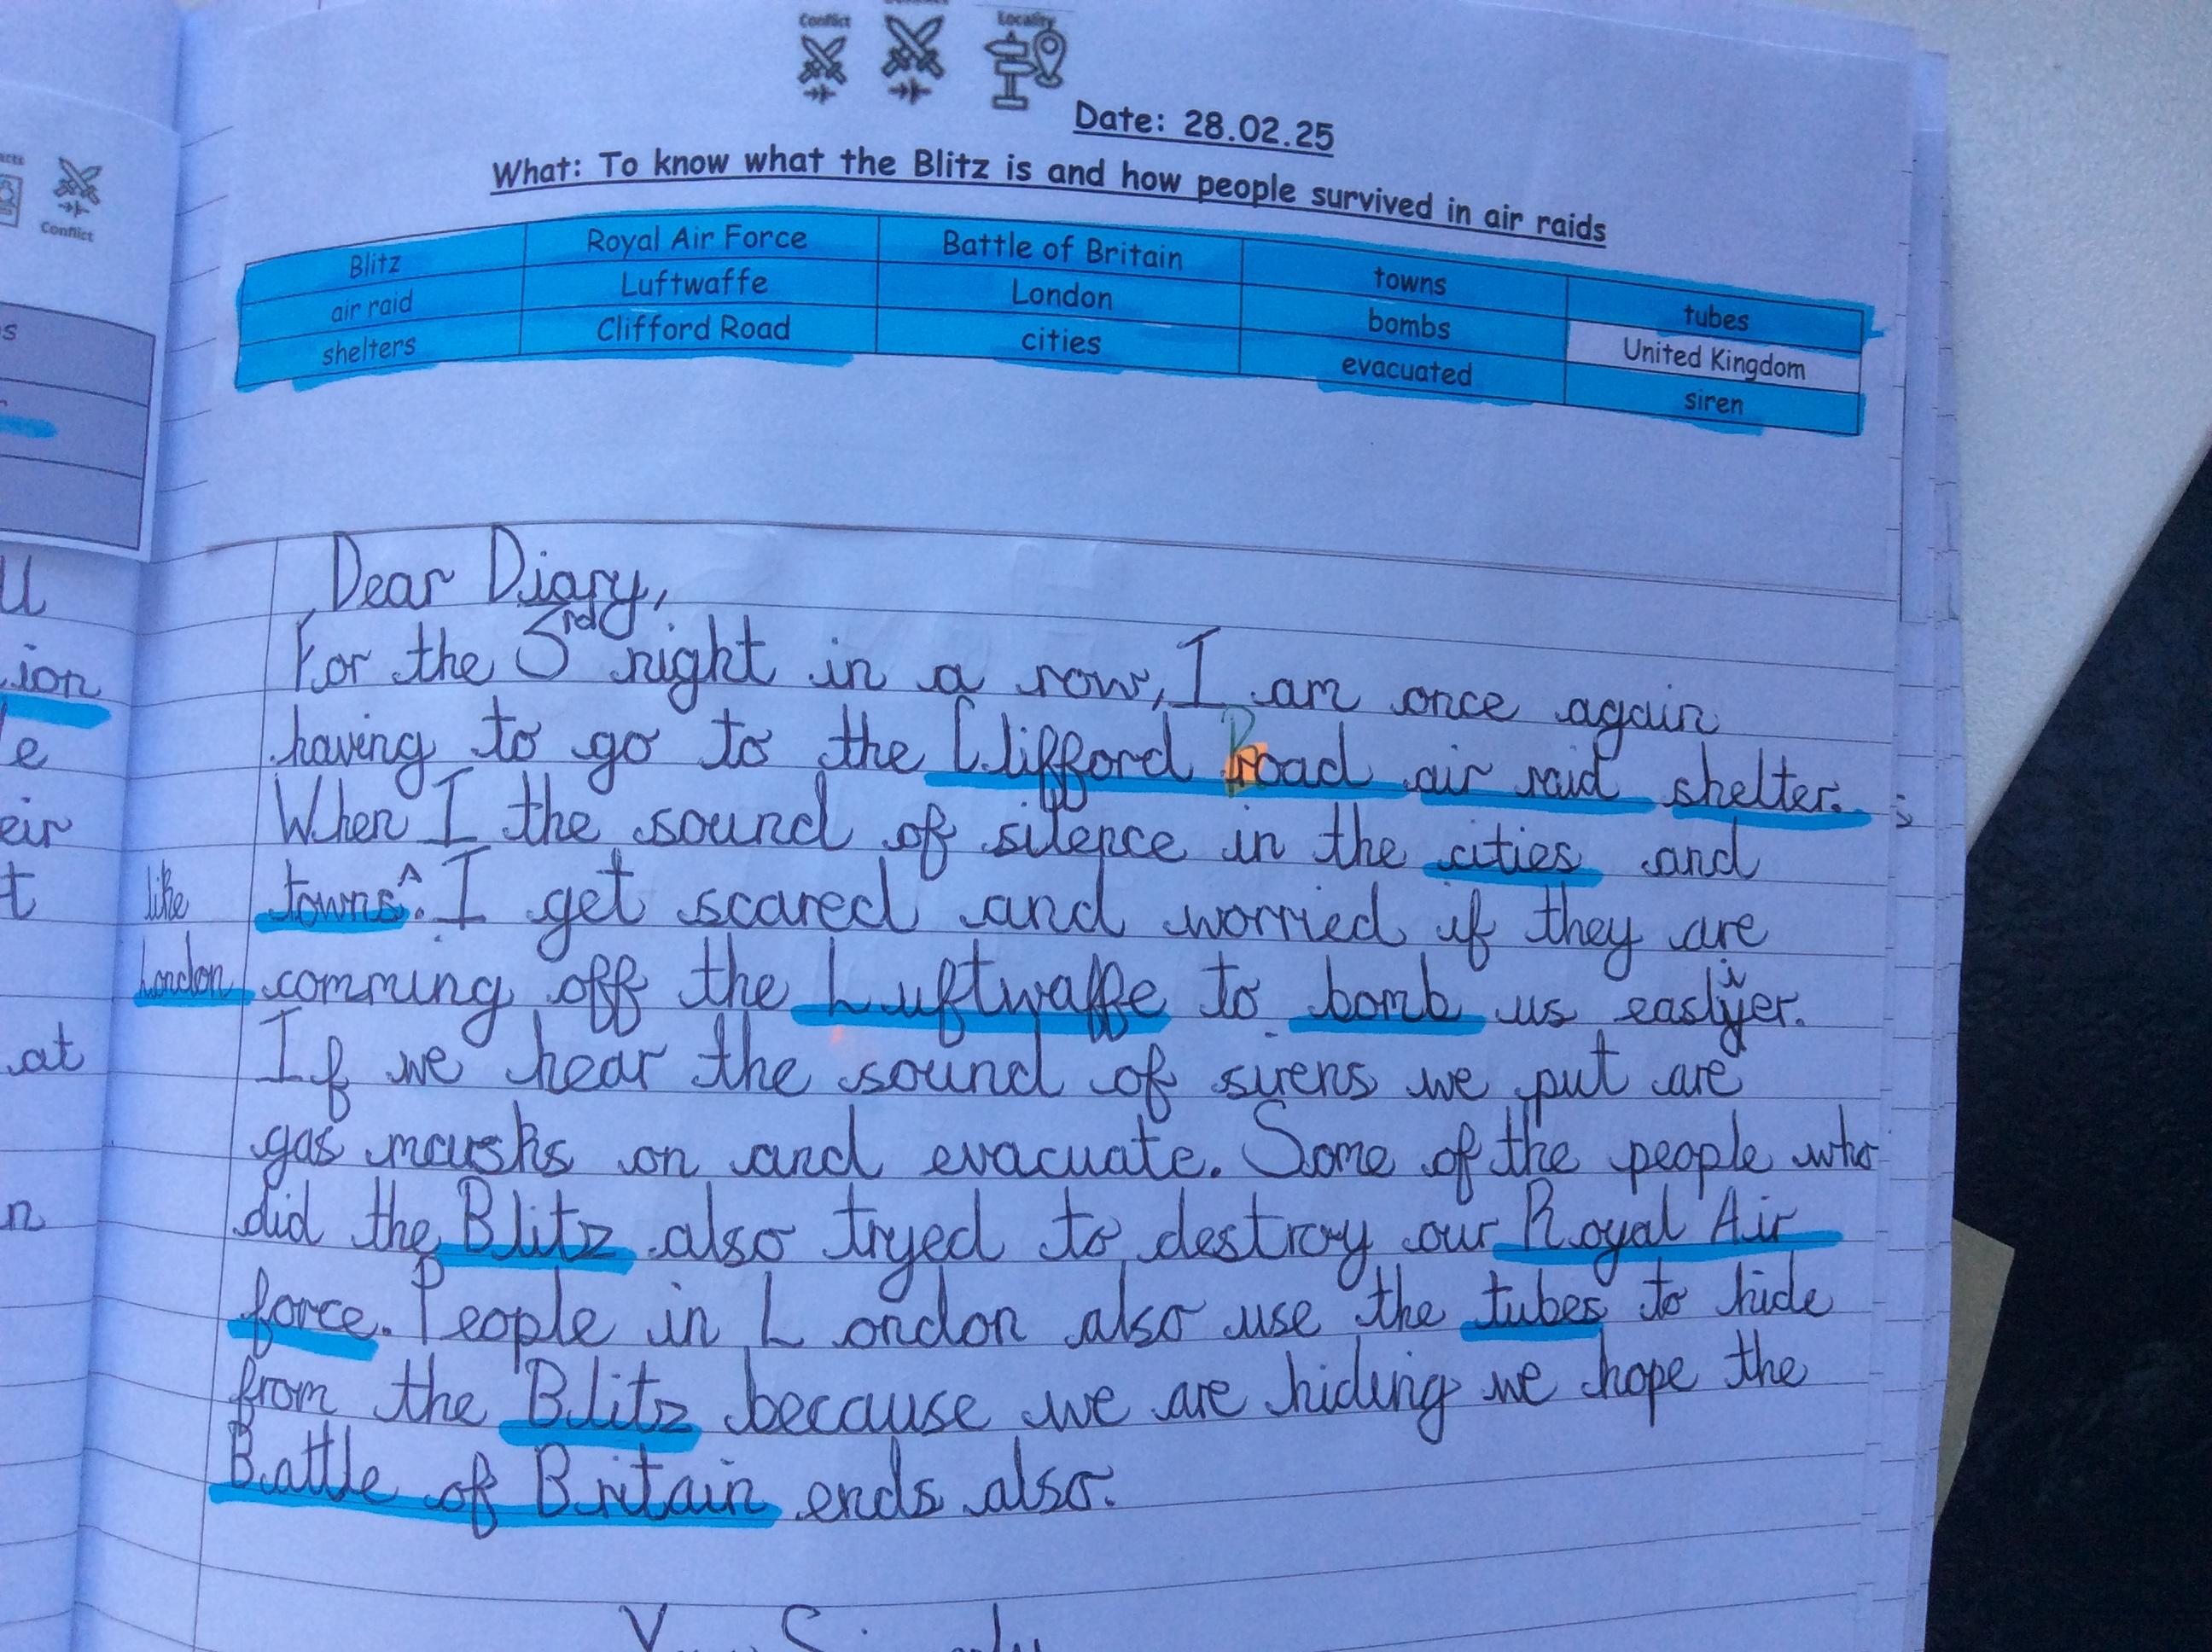 Conflict
Locality
Date: 28.02.25
What: To know what the Blitz is and how people survived in air raids
Blitz Royal Air Force Battle of Britain towns tubes
air raid Luftwaffe London bombs United Kingdom
shelters Clifford Road cities evacuated siren
Conflict
Dear Diary,
For the 3rd night in a row, I am once again
having to go to the Clifford Road air raid shelter.
When I the sound of silence in the cities and
towns^. I get scared and worried if they are
like
London
comming off the Luftwaffe to bomb us easlyier.
If we hear the sound of sirens we put are
gas masks on and evacuate. Some of the people who
did the Blitz also tryed to destroy our Royal Air
force. People in London also use the tubes to hide
from the Blitz because we are hiding we hope the
Battle of Britain ends also.
ion
e
eir
t
at
n